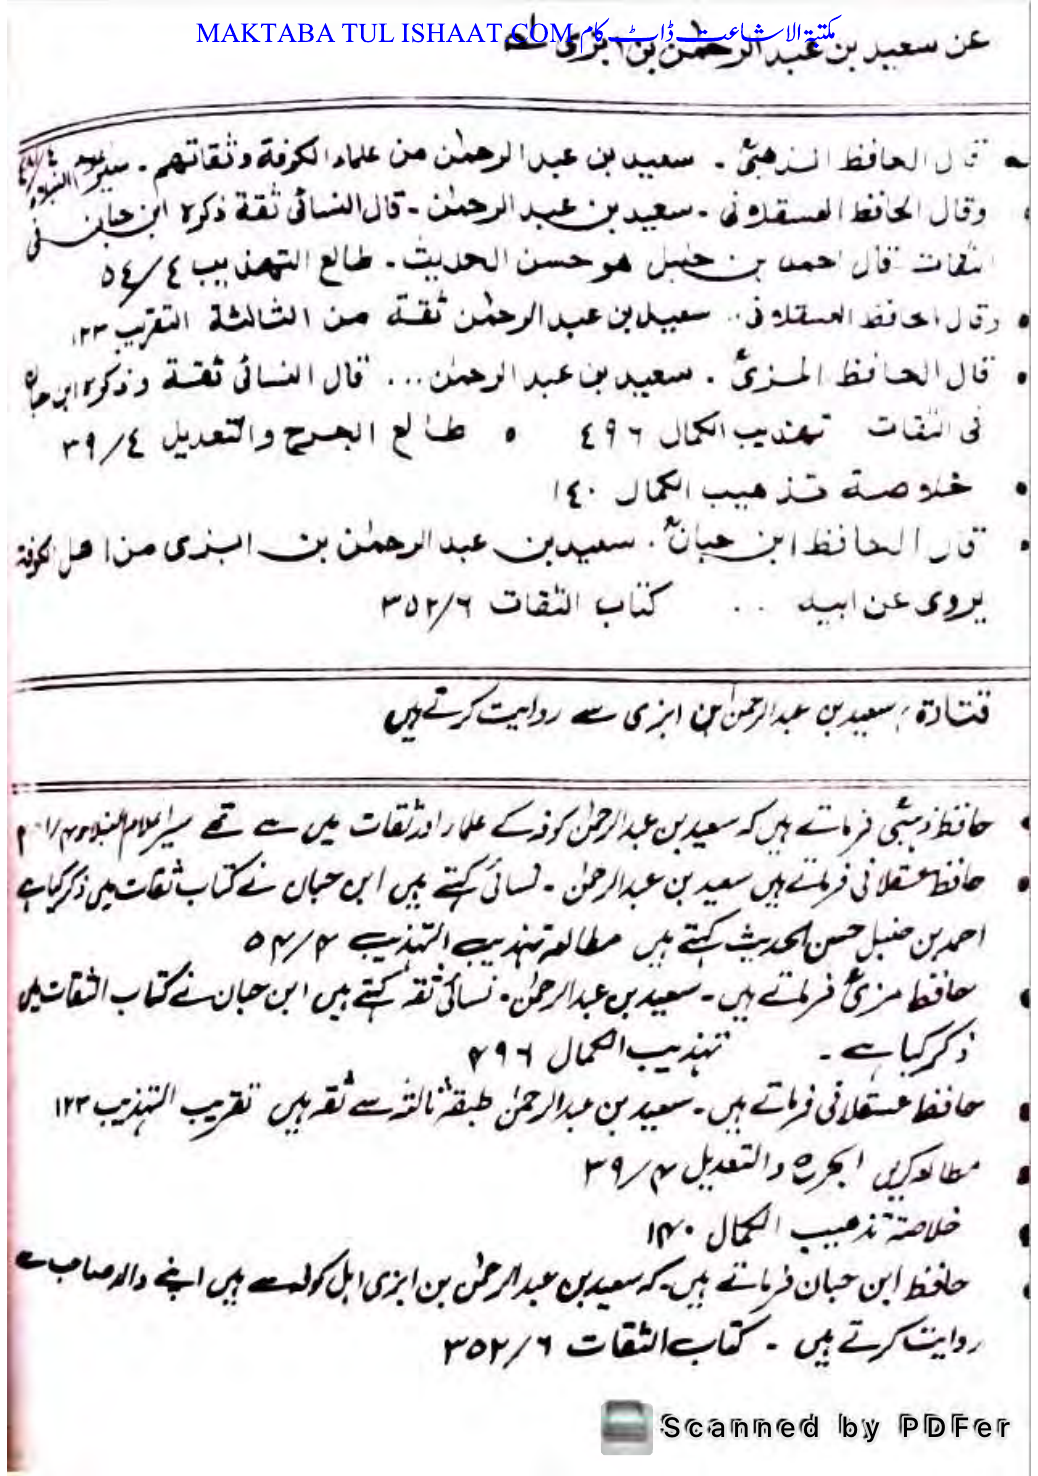 MAKTABA TUL ISHAAT.COM مکتبۃ الاشاعت ڈاٹ کام
عن سعید بن عبد الرحمٰن بن ابزی
قال الحافظ الذهبیؒ ۔ سعید بن عبد الرحمٰن من علماء الکوفة و ثقاتهم ۔ سیر اعلام النبلاء
وقال الحافظ العسقلانی ۔ سعید بن عبد الرحمٰن ۔ قال النسائی ثقة ذکره ابن حبان فی
الثقات قال احمد بن حنبل هو حسن الحدیث ۔ طالع التهذیب ٥٤/٤
وقال الحافظ العسقلانی .. سعید بن عبد الرحمٰن ثقة من الثالثة التقریب ١٢٣
قال الحافظ المزیؒ . سعید بن عبد الرحمٰن ... قال النسائی ثقة و ذکره ابن حبان
فی الثقات تهذیب الکمال ٤٩٦ • طالع الجرح والتعدیل ٣٩/٤
خلاصة تذهیب الکمال ١٤٠
قال الحافظ ابن حبانؒ . سعید بن عبد الرحمٰن بن ابزی من اهل الکوفة
یروی عن ابیه .. کتاب الثقات ٣٥٢/٦
قتادة، سعید بن عبد الرحمٰن ابن ابزی سے روایت کرتے ہیں
حافظ ذہبیؒ فرماتے ہیں کہ سعید بن عبد الرحمٰن کوفہ کے علماء اور ثقات میں سے تھے سیر اعلام النبلاء
حافظ عسقلانی فرماتے ہیں سعید بن عبد الرحمٰن ۔ نسائی کہتے ہیں ابن حبان نے کتاب ثقات میں ذکر کیا ہے
احمد بن حنبل حسن الحدیث کہتے ہیں مطالعہ تہذیب التہذیب ۵۴/۴
حافظ مزیؒ فرماتے ہیں ۔ سعید بن عبد الرحمٰن ۔ نسائی ثقہ کہتے ہیں ابن حبان نے کتاب الثقات میں
ذکر کیا ہے ۔ تہذیب الکمال ۴۹۶
حافظ عسقلانی فرماتے ہیں ۔ سعید بن عبد الرحمٰن طبقہ ثالثہ سے ثقہ ہیں تقریب التہذیب ۱۲۳
مطالعہ کریں الجرح والتعدیل ۳۹/۴
خلاصۃ تذہیب الکمال ۱۴۰
حافظ ابن حبان فرماتے ہیں ۔ کہ سعید بن عبد الرحمٰن بن ابزی اہل کوفہ سے ہیں اپنے والد صاحب سے
روایت کرتے ہیں ۔ کتاب الثقات ۳۵۲/۶
Scanned by PDFer